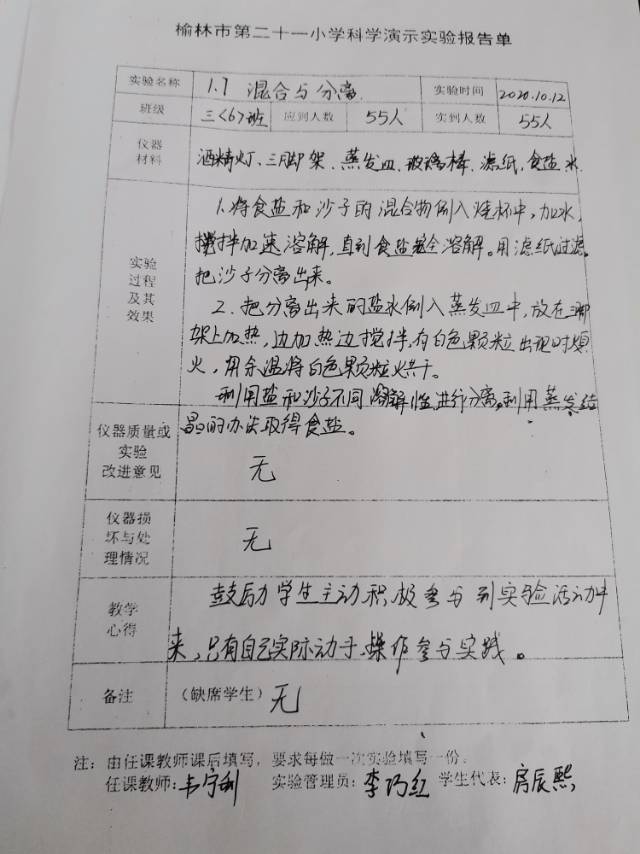 榆林市第二十一小学科学演示实验报告单
实验名称 1.7 混合与分离 实验时间 2020.10.12
班级 三<6>班 应到人数 55人 实到人数 55人
仪器
材料
酒精灯、三脚架、蒸发皿、玻璃棒、滤纸、食盐、水
实验
过程
及其
效果
1.将食盐和沙子的混合物倒入烧杯中,加水,
搅拌加速溶解,直到食盐完全溶解。用滤纸过滤。
把沙子分离出来。
2.把分离出来的盐水倒入蒸发皿中,放在三脚
架上加热,边加热边搅拌,有白色颗粒出现时熄
火,用余温将白色颗粒烘干。
利用盐和沙子不同溶解性进行分离。利用蒸发结
晶的办法取得食盐。
仪器质量或
实验
改进意见
无
仪器损
坏与处
理情况
无
教学
心得
鼓励学生主动积极参与到实验活动中
来,只有自己实际动手操作参与实践。
备注 (缺席学生) 无
注：由任课教师课后填写，要求每做一次实验填写一份。
任课教师: 实验管理员:李巧红 学生代表:房辰熙